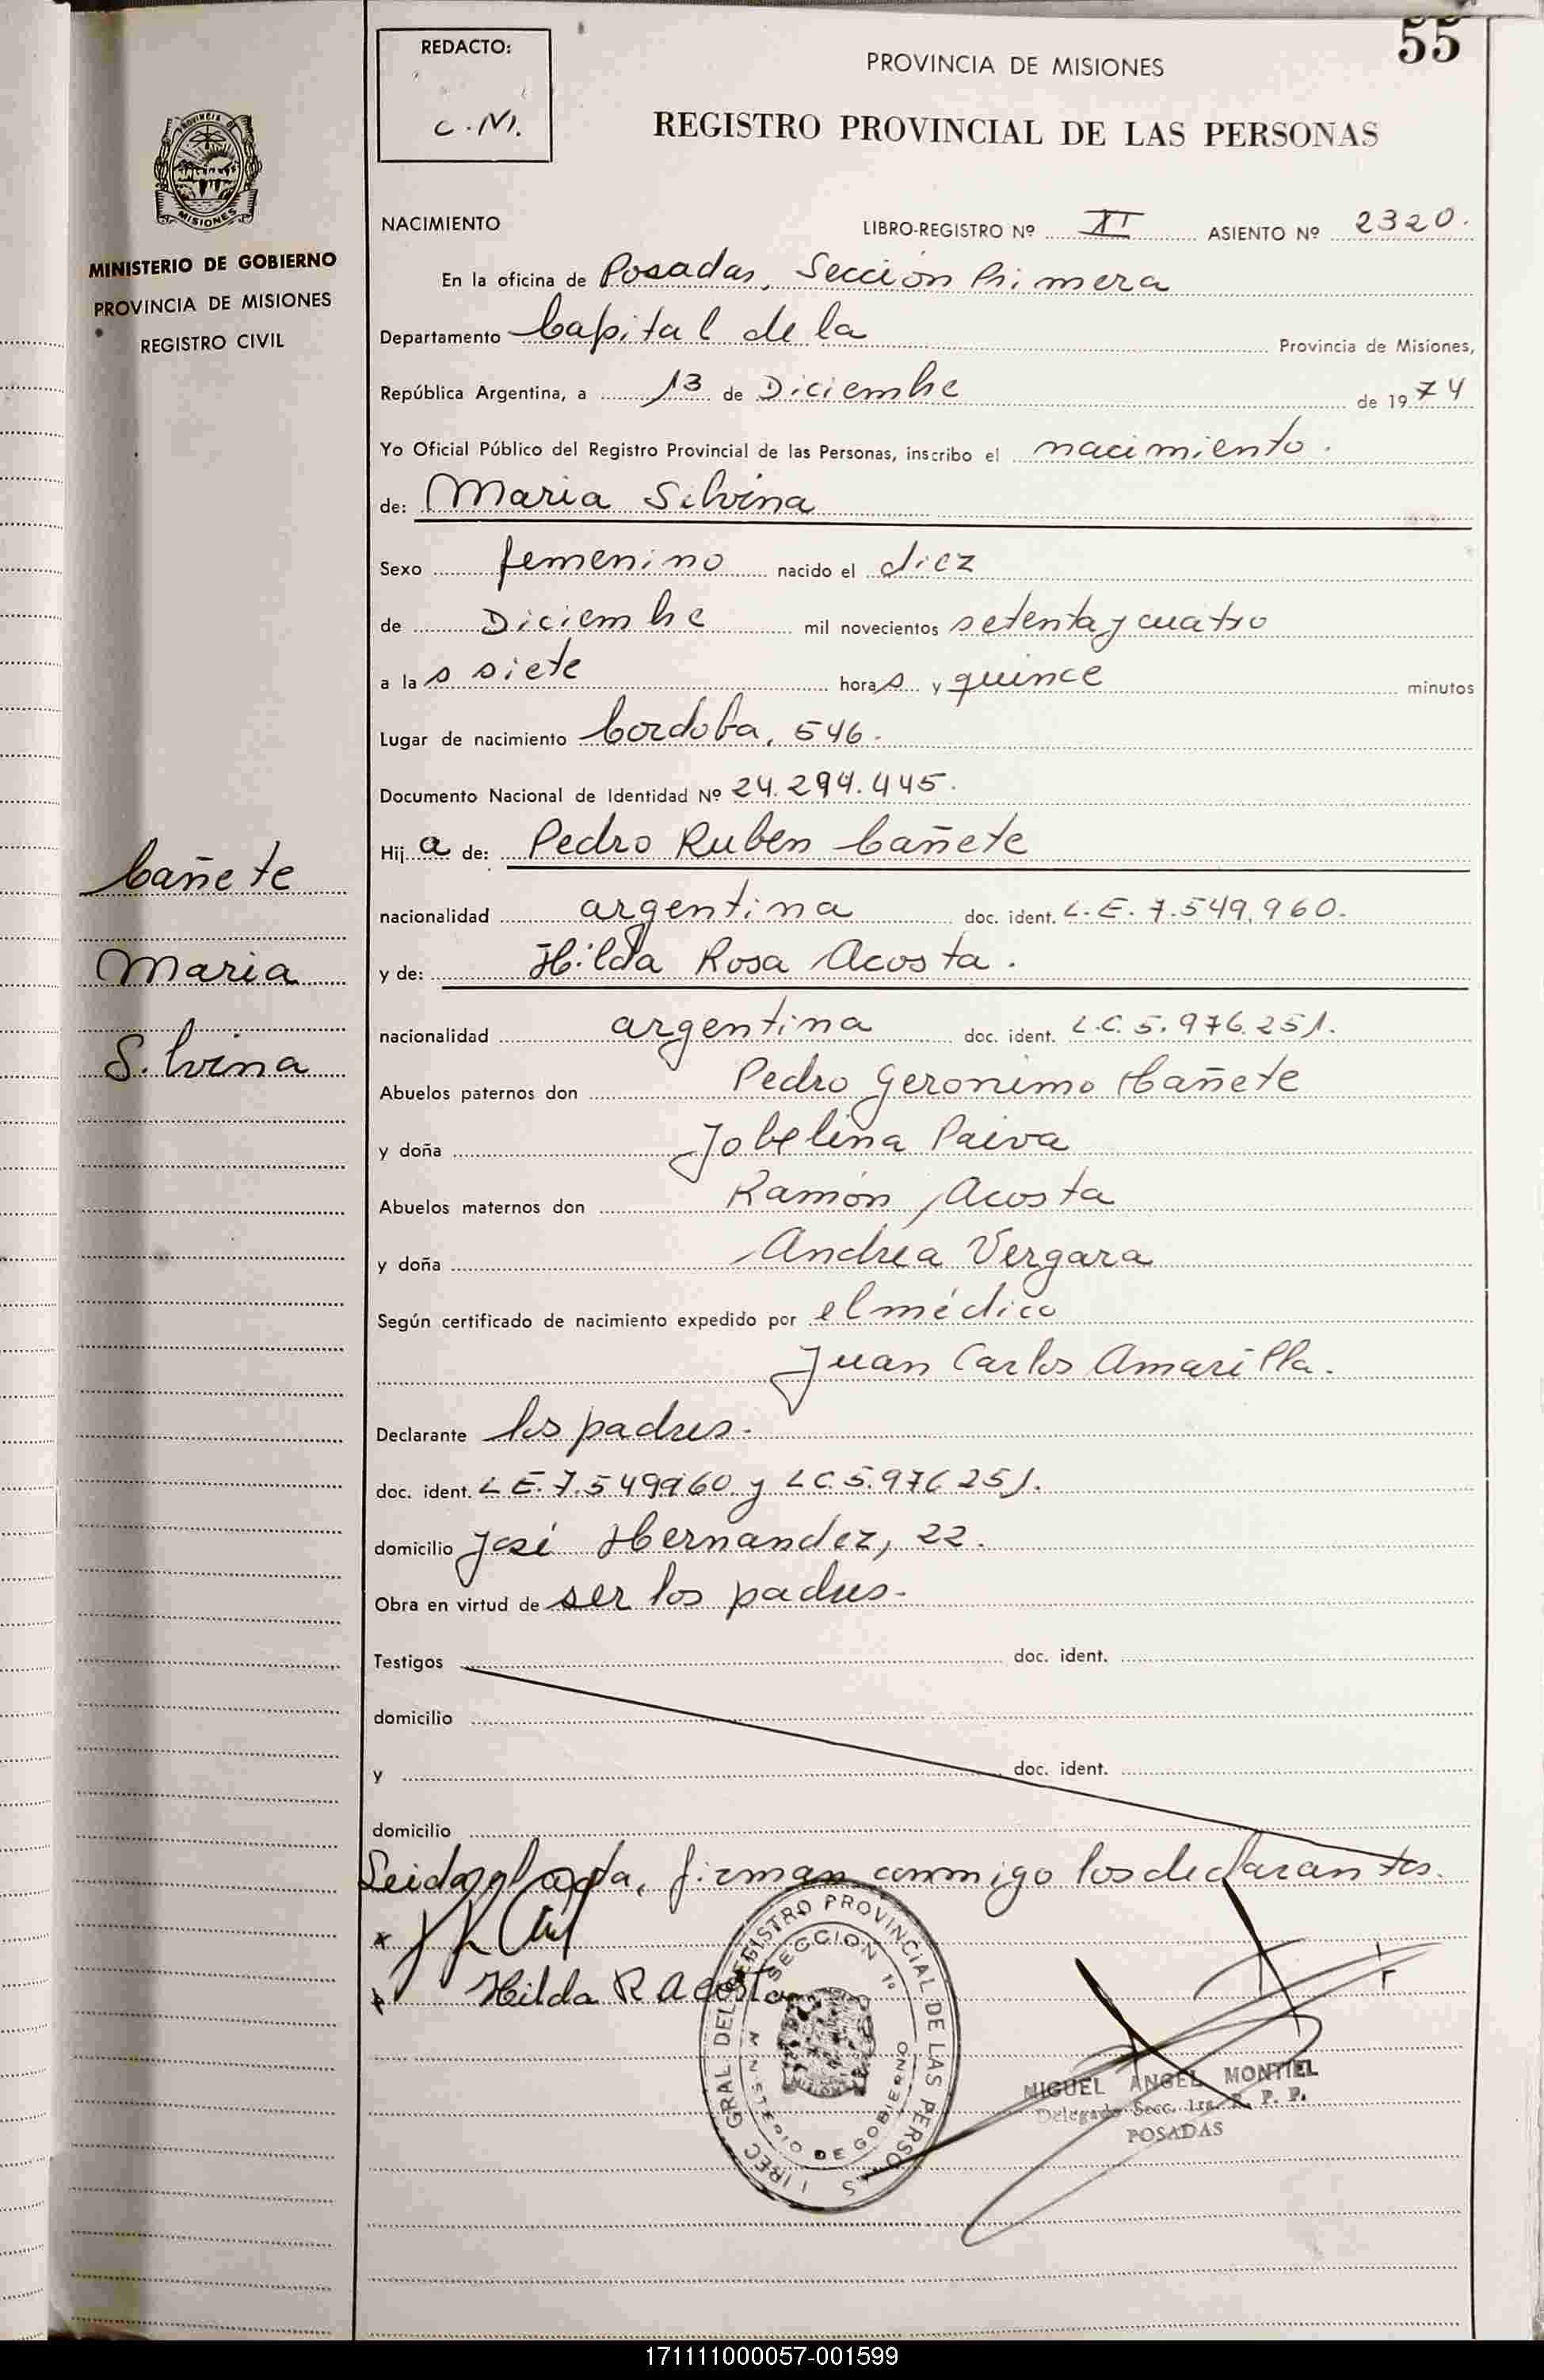 55
REDACTO:
C.M.
PROVINCIA DE MISIONES
REGISTRO PROVINCIAL DE LAS PERSONAS
PROVINCIA DE MISIONES
MINISTERIO DE GOBIERNO
PROVINCIA DE MISIONES
REGISTRO CIVIL
NACIMIENTO LIBRO-REGISTRO Nº XI ASIENTO Nº 2320.
En la oficina de Posadas, Sección Primera
Departamento Capital de la Provincia de Misiones,
República Argentina, a 13 de Diciembre de 1974
Yo Oficial Público del Registro Provincial de las Personas, inscribo el nacimiento.
de: Maria Silvina
Sexo femenino nacido el diez
de Diciembre mil novecientos setenta y cuatro
a las siete horas y quince minutos
Lugar de nacimiento Cordoba, 546.
Documento Nacional de Identidad Nº 24.294.445.
Hija de: Pedro Ruben Cañete
nacionalidad argentina doc. ident. L.E. 7.549.960.
y de: Hilda Rosa Acosta.
nacionalidad argentina doc. ident. L.C. 5.976.251.
Abuelos paternos don Pedro Geronimo Cañete
y doña Jobelina Paiva
Abuelos maternos don Ramón Acosta
y doña Andrea Vergara
Según certificado de nacimiento expedido por el médico
Juan Carlos Amarilla.
Declarante los padres.
doc. ident. L E. 7.549960 y LC.5.976251.
domicilio José Hernandez, 22.
Obra en virtud de ser los padres.
Testigos doc. ident.
domicilio
y doc. ident.
domicilio
Cañete
Maria
Silvina
Leida el acta, firman conmigo los declarantes.
Hilda R Acosta
DIREC GRAL. DEL REGISTRO PROVINCIAL DE LAS PERSONAS
SECCION 1a
MINISTERIO DE GOBIERNO
MIGUEL ANGEL MONTIEL
Delegado Secc. 1ra. R. P. P.
POSADAS
171111000057-001599